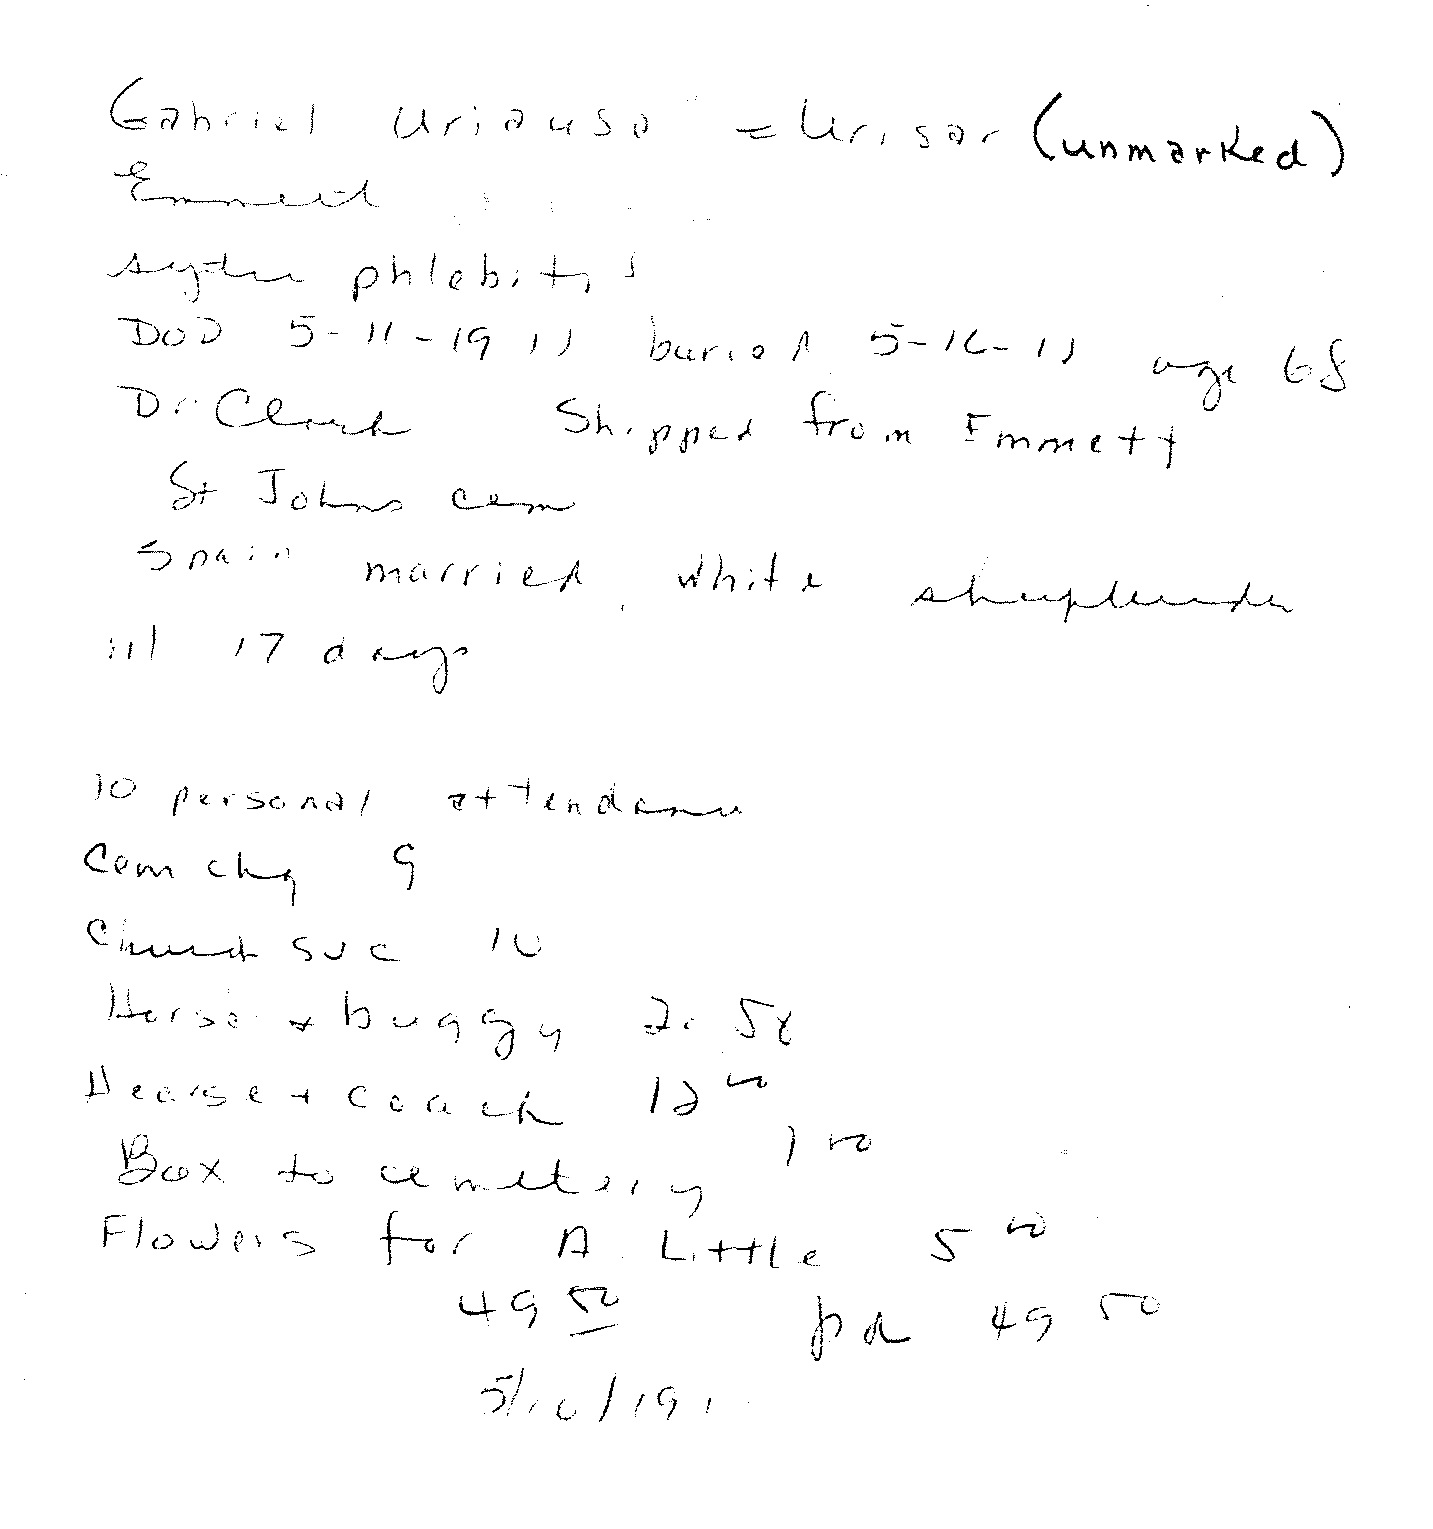 Gabriel Uriauso = Urisar (unmarked)
Emmett
phlebitis
DOD 5-11-1911 buried 5-16-11 age 68
Dr Clark Shipped from Emmett
St Johns cem
Spain married white sheepherder
ill 17 days
10 personal attendance
Cem chg 9
Church svc 10
Horse + buggy 2.50
Hearse + coach 12 00
Box to cemetery 1 00
Flowers for A. Little 5 00
49 50 pd 49 50